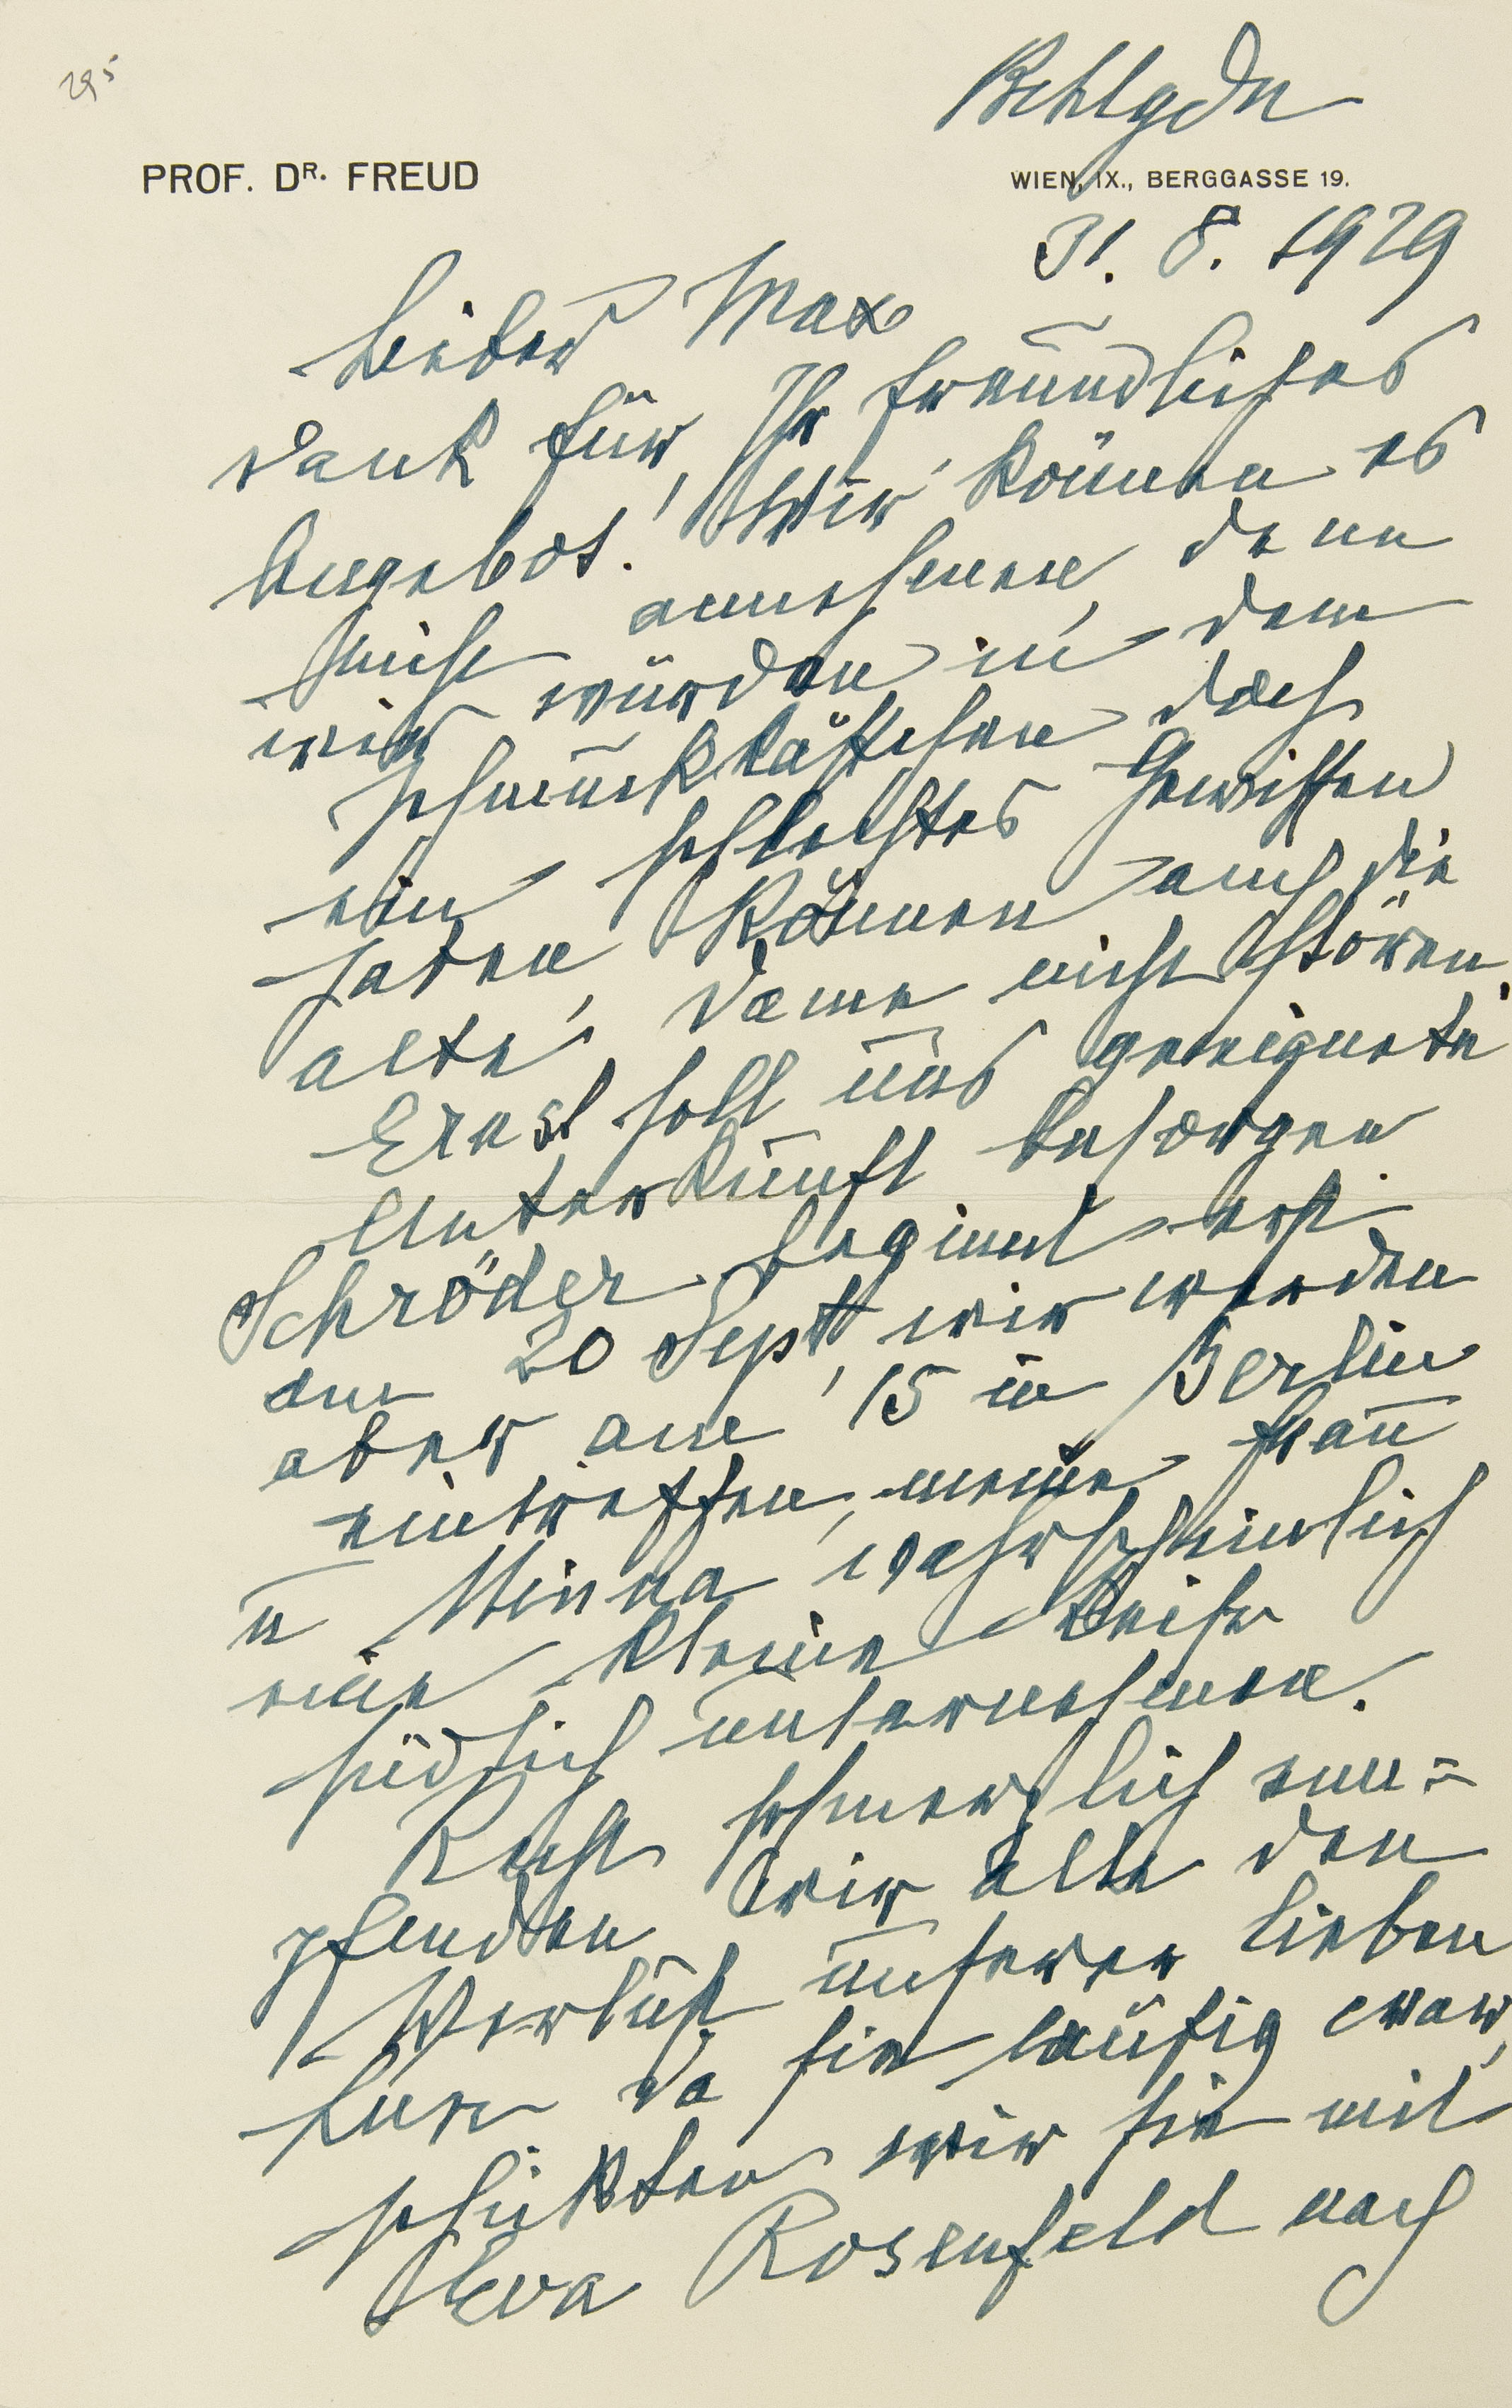 295
Bchtgdn
PROF. DR. FREUD
WIEN, IX., BERGGASSE 19.
31. 8. 1929
Lieber Max
Dank für Ihr freundliches
Angebot! Wir können es
nicht annehmen, denn
wir würden in dem
Schmuckkästchen doch
ein schlechtes Gewissen
haben, können auch die
alte Dame nicht stören.
Ernst soll uns geeignete
Unterkunft besorgen.
Schröder beginnt erst
am 20 Sept, wir werden
aber am 15 in Berlin
eintreffen, meine Frau
u Minna wahrscheinlich
eine kleine Reise
südlich unternehmen.
Recht schmerzlich em=
pfinden wir alle den
Verlust unserer lieben
Lun. Da sie läufig war,
schickten wir sie mit
Eva Rosenfeld nach